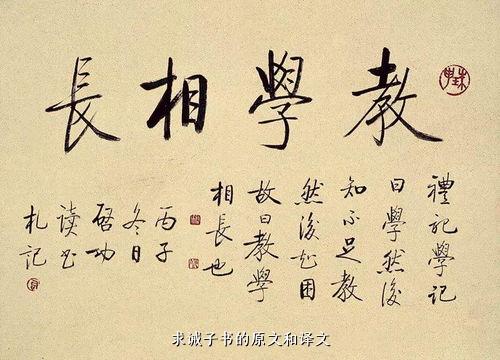 教學相長
禮記學記
曰學然後
知不足教
然後知困
故曰教學
相長也
丙子
冬日
啓功
读书
札記
求诫子书的原文和译文